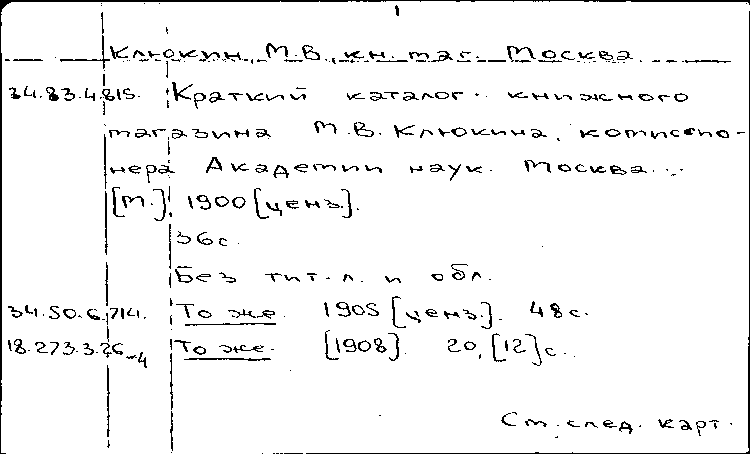 1
Клюкин, М.В., кн. маг. Москва
34.83.4.815. Краткий каталог книжного
магазина М.В. Клюкина, комиссио-
нера Академии наук. Москва...
[М.], 1900 [ценз.].
36 с.
Без тит. л. и обл.
34.50.6.714. То же. 1905 [ценз.]. 48 с.
18.273.3.26-4 То же. [1908]. 20, [12] с.
См. след. карт.